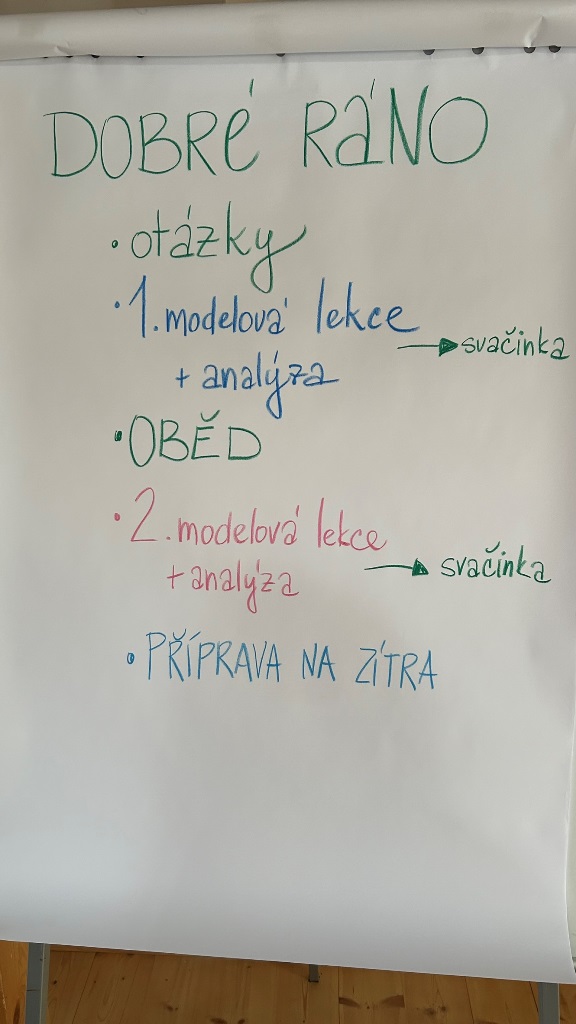 DOBRÉ RÁNO
• otázky
• 1. modelová lekce
→ svačinka
+ analýza
• OBĚD
• 2. modelová lekce
→ svačinka
+ analýza
• PŘÍPRAVA NA ZÍTRA